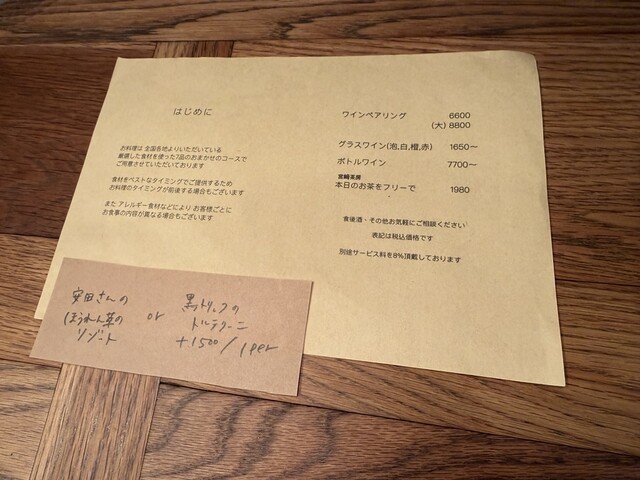 はじめに
お料理は 全国各地よりいただいている
厳選した食材を使った7品のおまかせのコースで
ご用意させていただいております
食材をベストなタイミングでご提供するため
お料理のタイミングが前後する場合もございます
また アレルギー食材などにより お客様ごとに
お食事の内容が異なる場合もございます
ワインペアリング 6600
(大) 8800
グラスワイン(泡,白,橙,赤) 1650〜
ボトルワイン 7700〜
宮﨑茶房
本日のお茶をフリーで 1980
食後酒・その他お気軽にご相談ください
表記は税込価格です
別途サービス料を8%頂戴しております
安田さんの
ほうれん草の
リゾート
or
黒トリュフの
トルテリーニ
+1500/1per